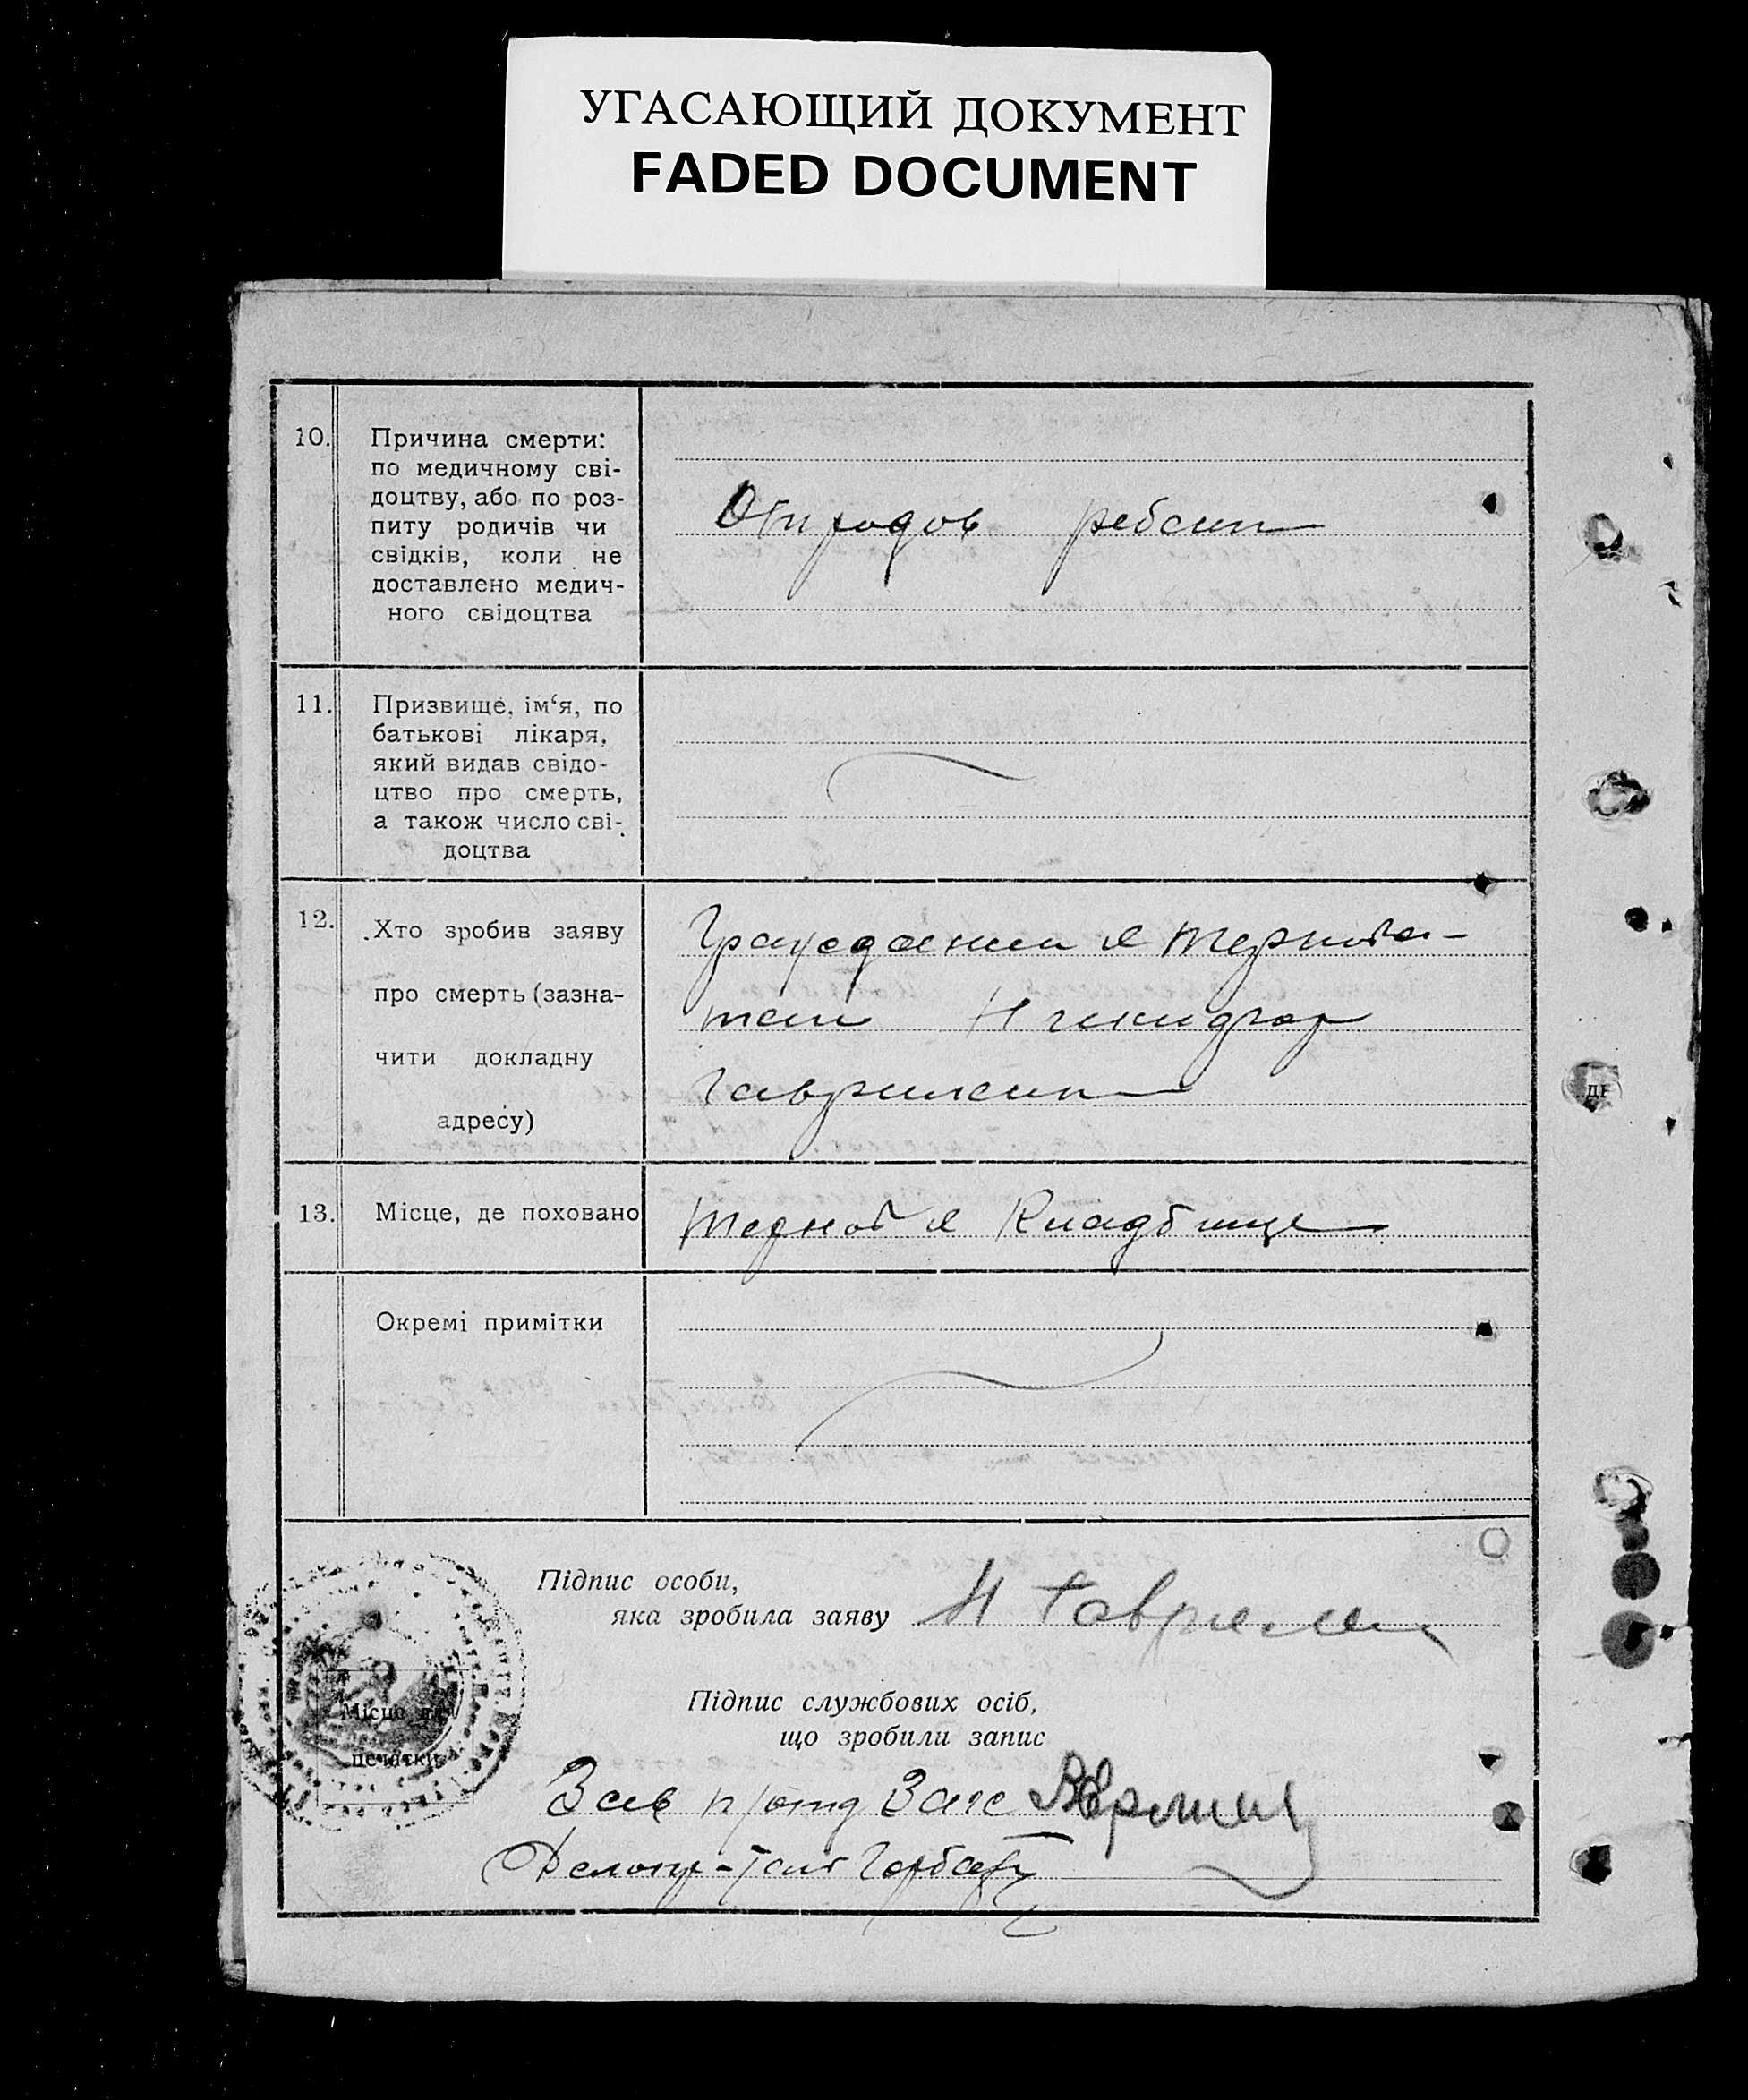 УГАСАЮЩИЙ ДОКУМЕНТ
FADED DOCUMENT
10.
Причина смерти:
по медичному сві-
доцтву, або по роз-
питу родичів чи
свідків, коли не
доставлено медич-
ного свідоцтва
От родов
11.
Призвище, ім‘я, по
батькові лікаря,
який видав свідо-
цтво про смерть,
а також число сві-
доцтва
12.
Хто зробив заяву
про смерть (зазна-
чити докладну
адресу)
Гражданин
Гаврилин
13.
Місце, де поховано
Кладбище
Окремі примітки
Підпис особи,
яка зробила заяву
Н
Підпис службових осіб,
що зробили запис
Місце для
печатки
Зав п/отд Загс